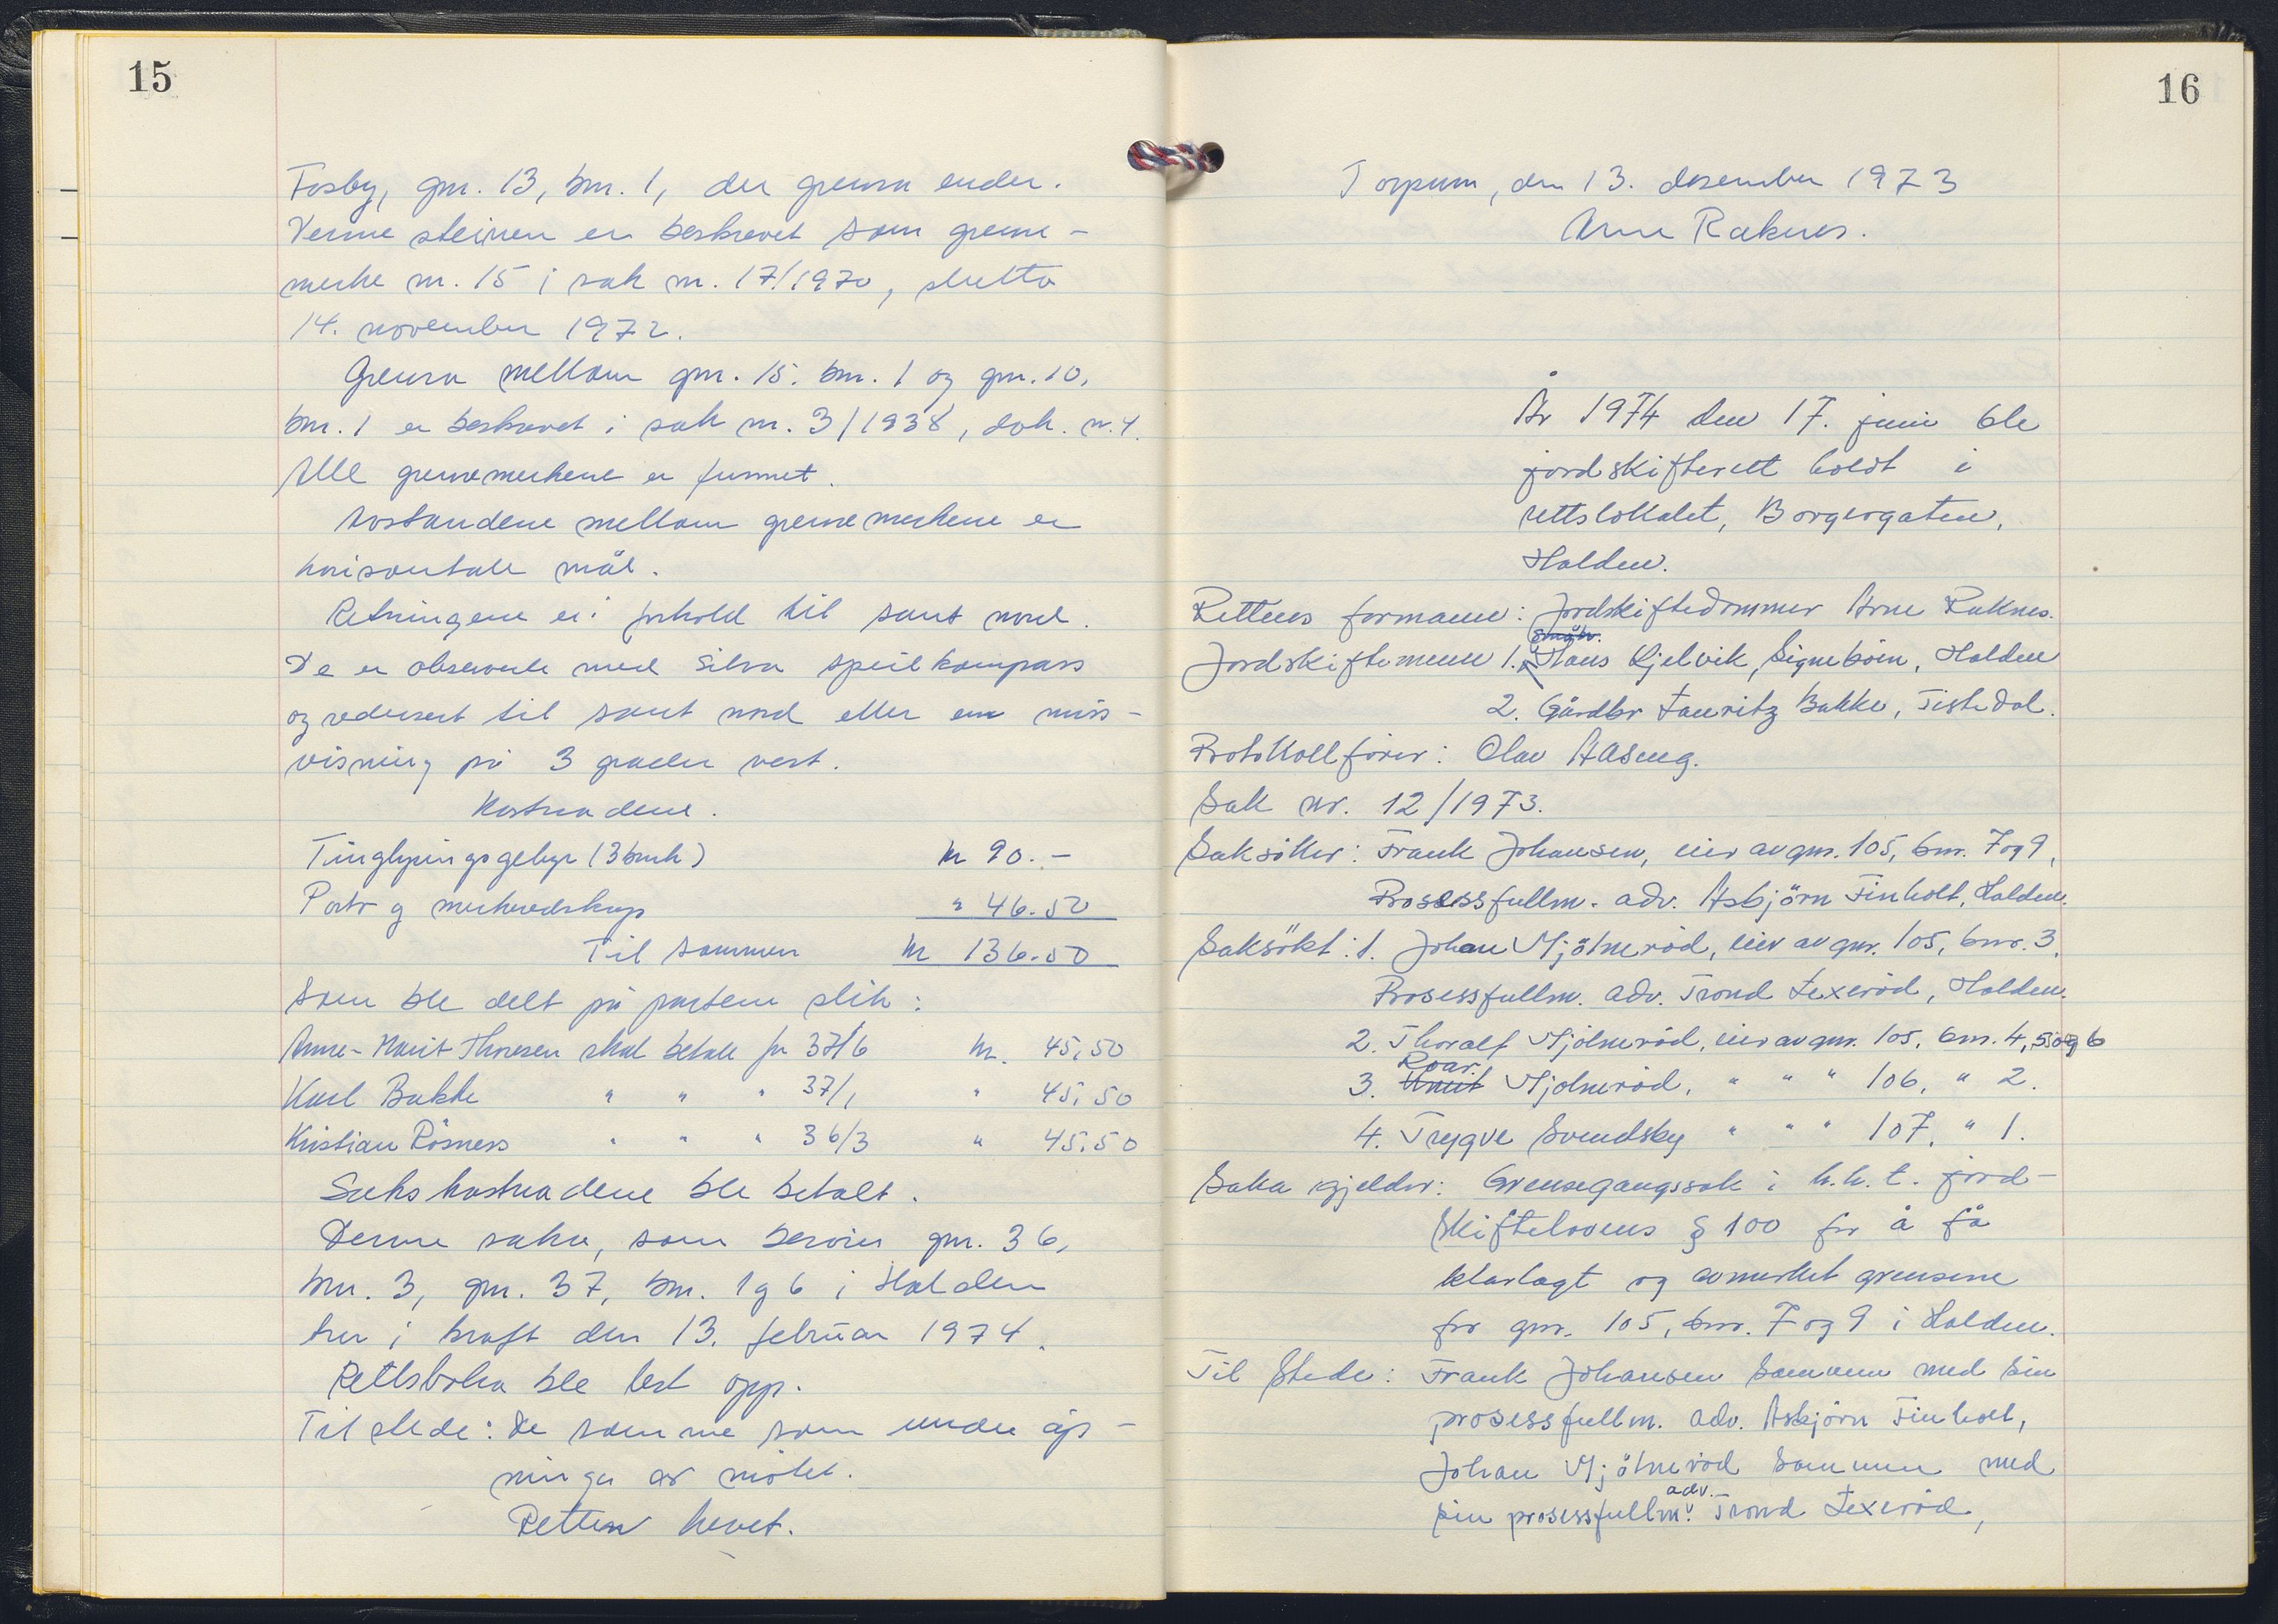 15
Fosby, gnr. 13, bnr. 1, der grensa ender.
Denne steinen er beskrevet som grense-
merke nr. 15 i sak nr. 17/1970, slutta
14. november 1972.
Grensa mellom gnr. 15. bnr. 1 og gnr. 10,
bnr. 1 er beskrevet i sak nr. 3/1938, dok. nr. 4.
Alle grensemerkene er funnet.
Avstandene mellom grensemerkene er
horisontale mål.
Retningene er i forhold til sant nord.
De er observerte med Silva speilkompass
og redusert til sant nord etter en mis-
visning på 3 grader vest.
Kostnadene.
Tinglysingsgebyr (3 bruk) kr 90.-
Porto og merkeredskap " 46.50
Til sammen kr 136.50
som ble delt på partene slik:
Anne-Marit Thoresen skal betale for 37/6 kr. 45,50
Karl Bakke " " " 37/1 " 45,50
Kristian Rösnes " " " 36/3 " 45.50
Sakskostnadene ble betalt.
Denne saka, som berører gnr. 36,
bnr. 3, gnr. 37, bnr. 1 og 6 i Halden
trer i kraft den 13. februar 1974.
Rettsboka ble lest opp.
Til stede: De samme som under åp-
ninga av møtet.
Retten hevet.
16
Torpum, den 13. desember 1973
Arne Raknes.
År 1974 den 17. juni ble
jordskifterett holdt i
rettslokalet, Borgergaten,
Halden.
Rettens formann: Jordskiftedommer Arne Raknes.
småbr.
Jordskiftemenn 1. Hans Kjelvik, Signebøen, Halden
2. Gårdbr Lauritz Bakke, Tistedal.
Protokollfører: Olav Aaseng.
Sak nr. 12/1973.
Saksöker: Frank Johansen, eier av gnr. 105, bnr. 7 og 9,
Prosessfullm. adv. Asbjörn Finholt, Halden.
Saksökt: 1. Johan Mjölneröd, eier av gnr. 105, bnr. 3,
Prosessfullm. adv. Trond Lexeröd, Halden.
2. Thoralf Mjölneröd, eier av gnr. 105, bnr. 4, 5 og 6
Roar
3. Knut Mjölneröd, " " " 106, " 2.
4. Trygve Svendsby " " " 107, " 1.
Saka gjelder: Grensegangssak i h.h.t. jord-
skiftelovens § 100 for å få
klarlagt og avmerket grensene
for gnr. 105, bnr. 7 og 9 i Halden.
Til Stede: Frank Johansen sammen med sin
prosessfullm. adv. Asbjörn Finholt,
Johan Mjölneröd sammen med
adv.
sin prosessfullm. Trond Lexeröd,